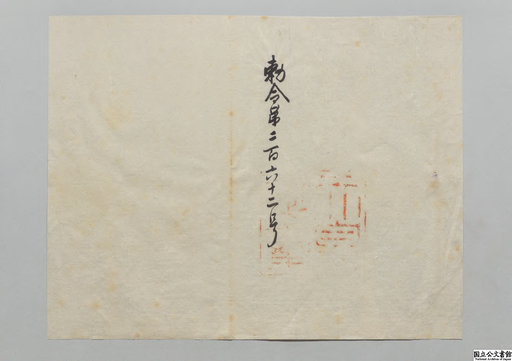 勅令第二百六十二号
国立公文書館
National Archives of Japan